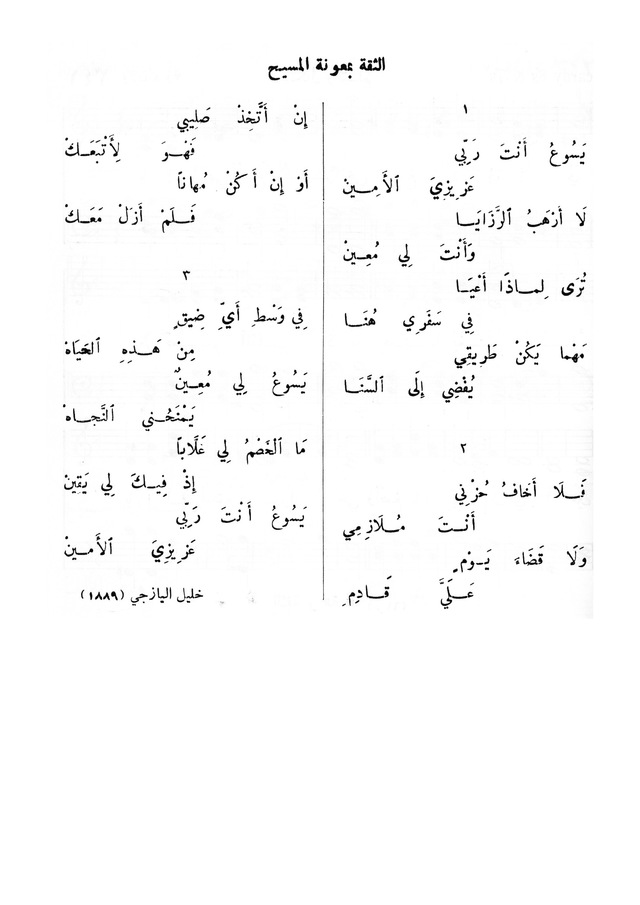 الثقة بمعونة المسيح
١
يَسُوعُ أَنْتَ رَبِّي
عَزِيزِيَ ٱلأَمِينْ
لَا أَرْهَبُ ٱلرَّزَايَا
وَأَنْتَ لِي مُعِينْ
تُرَى لِماذَا أَعْيَا
فِي سَفَرِي هُنَا
مَهْما يَكُنْ طَرِيقِي
يُفْضِي إِلَى ٱلسَّنَا
٢
فَلَا أَخافُ حُزْنِي
أَنْتَ مُلَازِمِي
وَلَا قَضَاءَ يَوْمٍ
عَلَيَّ قَادِمِ
إِنْ أَتَّخِذْ صَلِيبِي
فَهْوَ لِأَتْبَعَكْ
أَوْ إِنْ أَكُنْ مُهاناً
فَلَمْ أَزَلْ مَعَكْ
٣
فِي وَسْطِ أَيِّ ضِيقٍ
مِنْ هَذِهِ ٱلحَيَاهْ
يَسُوعُ لِي مُعِينٌ
يَمْنَحُني ٱلنَّجاهْ
مَا ٱلخَصْمُ لِي غَلَّاباً
إِذْ فِيكَ لِي يَقِينْ
يَسُوعُ أَنْتَ رَبِّي
عَزِيزِيَ ٱلأَمينْ
خليل اليازجي (١٨٨٩)